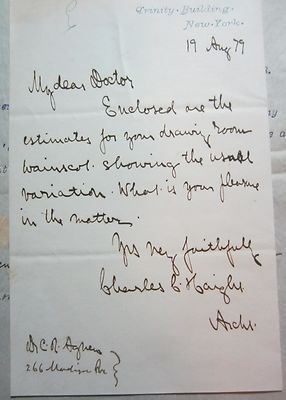 Trinity Building.
New-York.
19 Aug 79
My dear Doctor
Enclosed are the
estimates for your drawing room
wainscot. showing the usual
variation. What is your pleasure
in the matter.
Yrs very faithfully
Charles C. Haight.
Archt.
Dr C. R. Agnew
266 Madison Ave